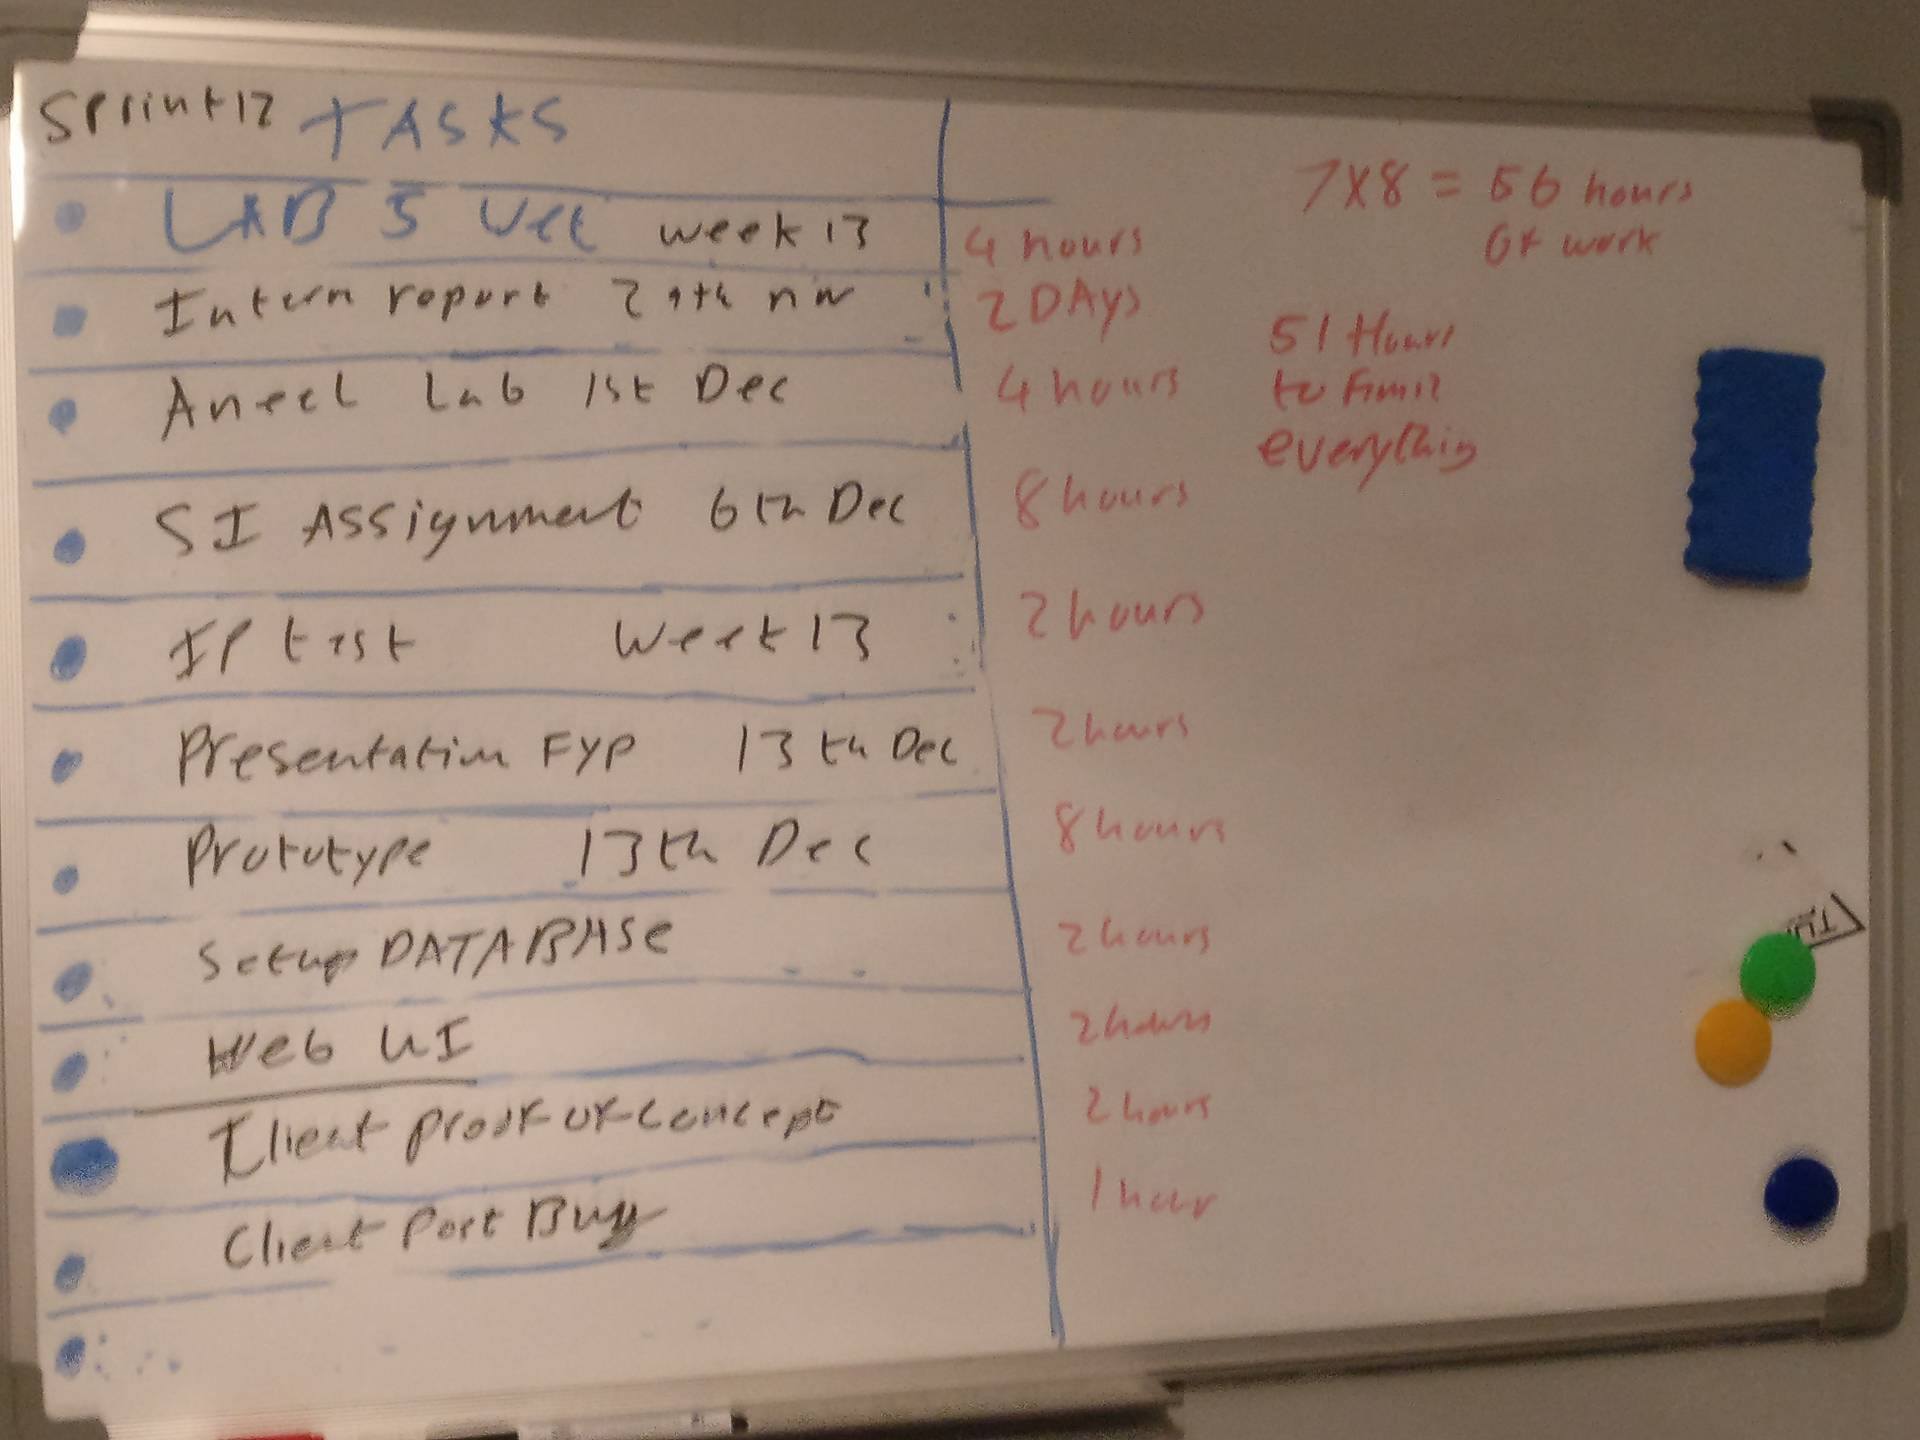 Sprint 12 TASKS
LAB 5 Wet week 13 4 hours
Intern report 29th nov 2 DAys
Aneel Lab 1st Dec 4 hours
SI Assignment 6th Dec 8 hours
IP test Week 13 2 hours
Presentation FYP 13th Dec 2 hours
Prototype 13th Dec 8 hours
Setup DATABASE 2 hours
Web UI 2 hours
Client proof of concept 2 hours
Client Port Bug 1 hour
7x8 = 56 hours
of work
51 Hours
to finish
everything